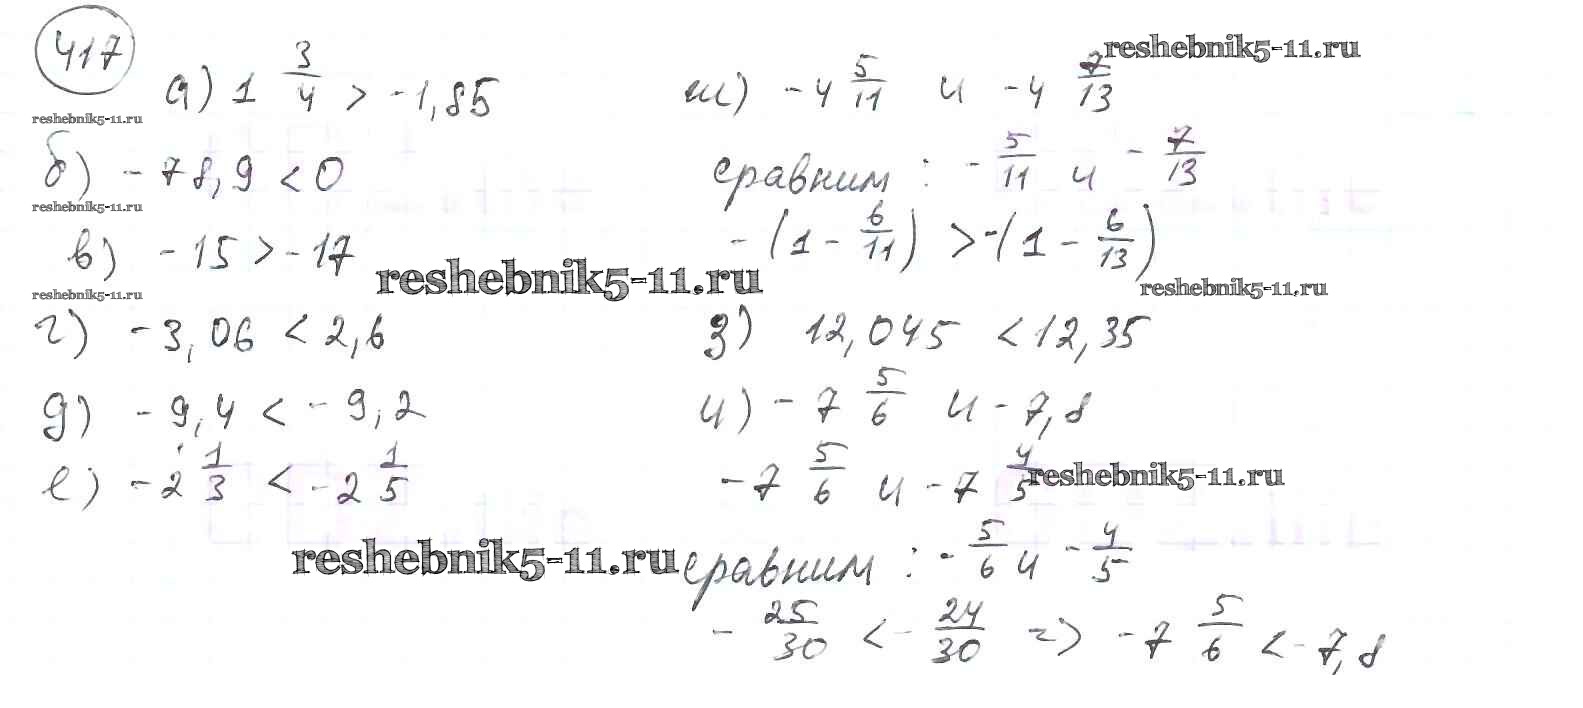 417
а) 1 3/4 > -1,85
reshebnik5-11.ru
б) -78,9 < 0
reshebnik5-11.ru
в) -15 > -17
reshebnik5-11.ru
reshebnik5-11.ru
г) -3,06 < 2,6
д) -9,4 < -9,2
е) -2 1/3 < -2 1/5
reshebnik5-11.ru
reshebnik5-11.ru
ж) -4 5/11 и -4 7/13
сравним : -5/11 и -7/13
-(1 - 6/11) > -(1 - 6/13)
reshebnik5-11.ru
з) 12,045 < 12,35
и) -7 5/6 и -7,8
-7 5/6 и -7 4/5
reshebnik5-11.ru
сравним : -5/6 и -4/5
-25/30 < -24/30 => -7 5/6 < -7,8